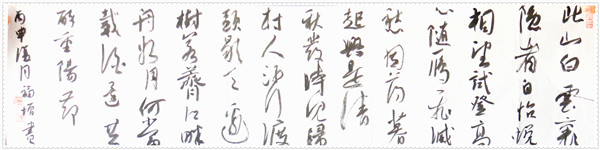 此山白雲裏
隱者自怡悦
相望試登高
心隨雁飛滅
愁因薄暮
起興是清
秋發時見歸
村人沙行渡
頭歇天邊
樹若薺江畔
舟如月何當
載酒來共
醉重陽節
丙申 月 書